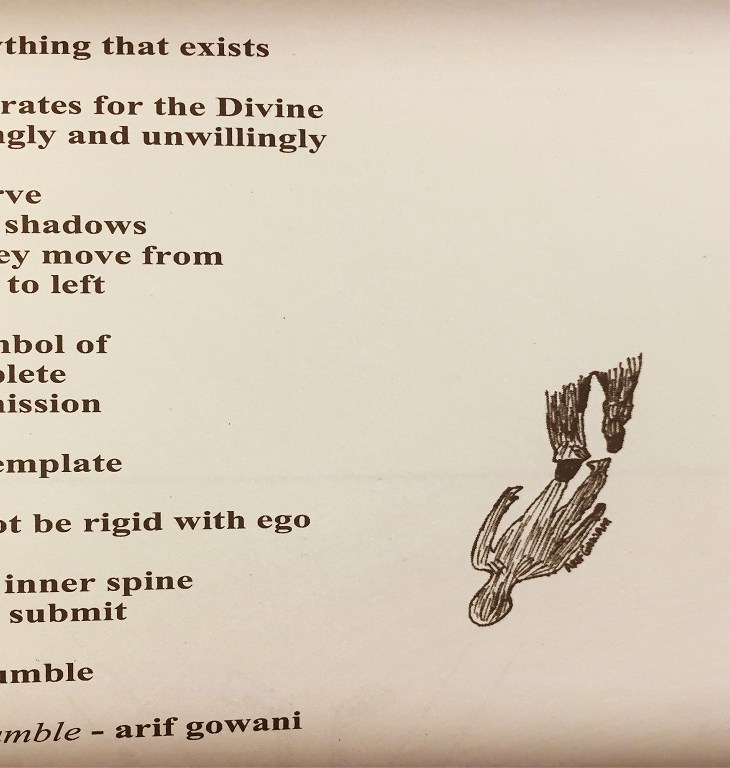 ything that exists
rates for the Divine
ngly and unwillingly
rve
shadows
ey move from
to left
nbol of
plete
nission
emplate
ot be rigid with ego
inner spine
submit
umble
umble - arif gowani
ARIF GOWANI